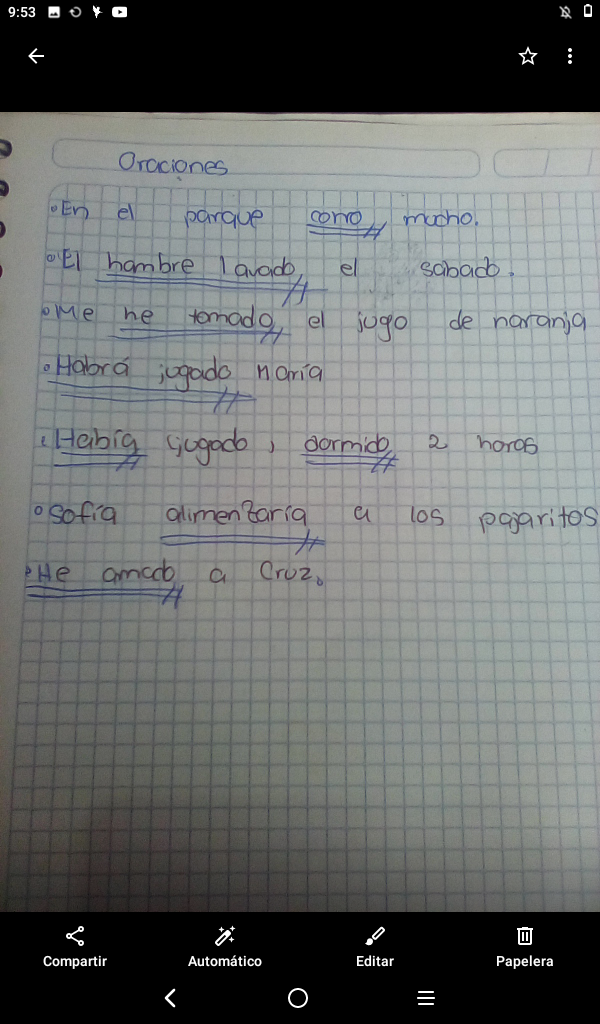 9:53
Oraciones
En el parque corro, mucho.
El hambre lavado, el sabado.
Me he tomado, el jugo de naranja
Habrá jugado María
Había jugado, dormido, 2 horas
Sofía alimentaría a los pajaritos
He amado a Cruz.
Compartir Automático Editar Papelera